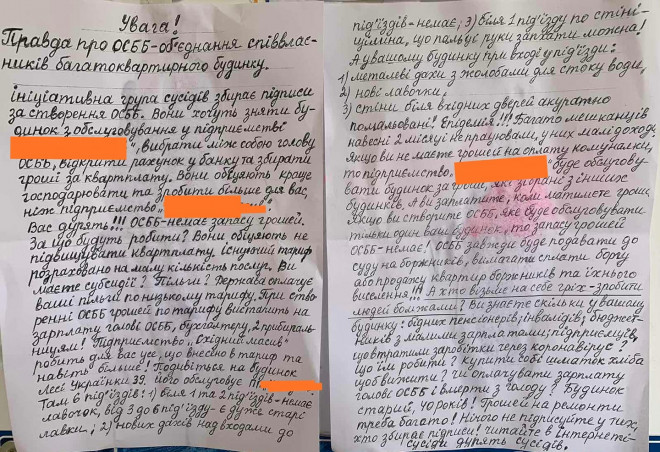 Увага!
Правда про ОСББ-об'єднання співвлас-
ників багатоквартирного будинку.
ініціативна група сусідів збирає підписи
за створення ОСББ. Вони хочуть зняти бу-
динок з обслуговування у підприємстві
", вибрати між собою голову
ОСББ, відкрити рахунок у банку та збирати
гроші за квартплату. Вони обіцяють краще
господарювати та зробити більше для вас,
ніж підприємство "
Вас дурять!!! ОСББ-немає запасу грошей.
За що будуть робити? Вони обіцяють не
підвищувати квартплату. існуючий тариф
розраховано на малу кількість послуг. Ви
маєте субсидії? Пільги? Держава оплачує
ваші пільги по низькому тарифу. При ство-
ренні ОСББ грошей по тарифу вистачить на
зарплату голові ОСББ, бухгалтеру, 2 прибираль-
ницям! Підприємство „Східний масив"
робить для вас усе, що внесено в тариф та
навіть більше! Подивіться на будинок
Лесі Українки 39. його обслуговує
Там 6 під'їздів: 1) біля 1 та 2 під'їздів-немає
лавочок, від 3 до 6 під'їзду-є дуже старі
лавки; 2) нових дахів над входами до
під'їздів-немає; 3) біля 1 під'їзду по стіні-
щілина, що пальці руки запхати можена!
А у вашому будинку при вході у під'їзди:
1) металеві дахи з жолобами для стоку води,
2) нові лавочки,
3) стіни біля вхідних дверей акуратно
помальовані! Епідемія!!! Багато мешканців
навесні 2 місяці не працювали, у них малі доходи,
Якщо ви не маєте грошей на оплату комуналки,
то підприємство „ " буде обслугову-
вати будинок за гроші, які зібрані з інших
будинків. А ви заплатите, коли матимете гроші
Якщо ви створите ОСББ, яке буде обслуговувати
тільки один ваш будинок, то запасу грошей
ОСББ-немає! ОСББ завжди буде подавати до
суду на боржників, вимагати сплати боргу
або продажу квартир боржників та їхнього
виселення!!! А хто візьме на себе гріх-зробити
людей бомжами? Ви знаєте скільки у вашому
будинку: бідних пенсіонерів; інвалідів; бюджет-
ників з малими зарплатами; підприємців,
що втратили заробітки через коронавірус?
що їм робити? купити собі шматок хліба
щоб вижити? Чи оплачувати зарплату
голові ОСББ і вмерти з голоду? Будинок
старий, 40 років! Грошей на ремонти
треба багато! Нічого не підписуйте у тих,
хто збирає підписи! читайте в інтернеті-
сусіди дурять сусідів.